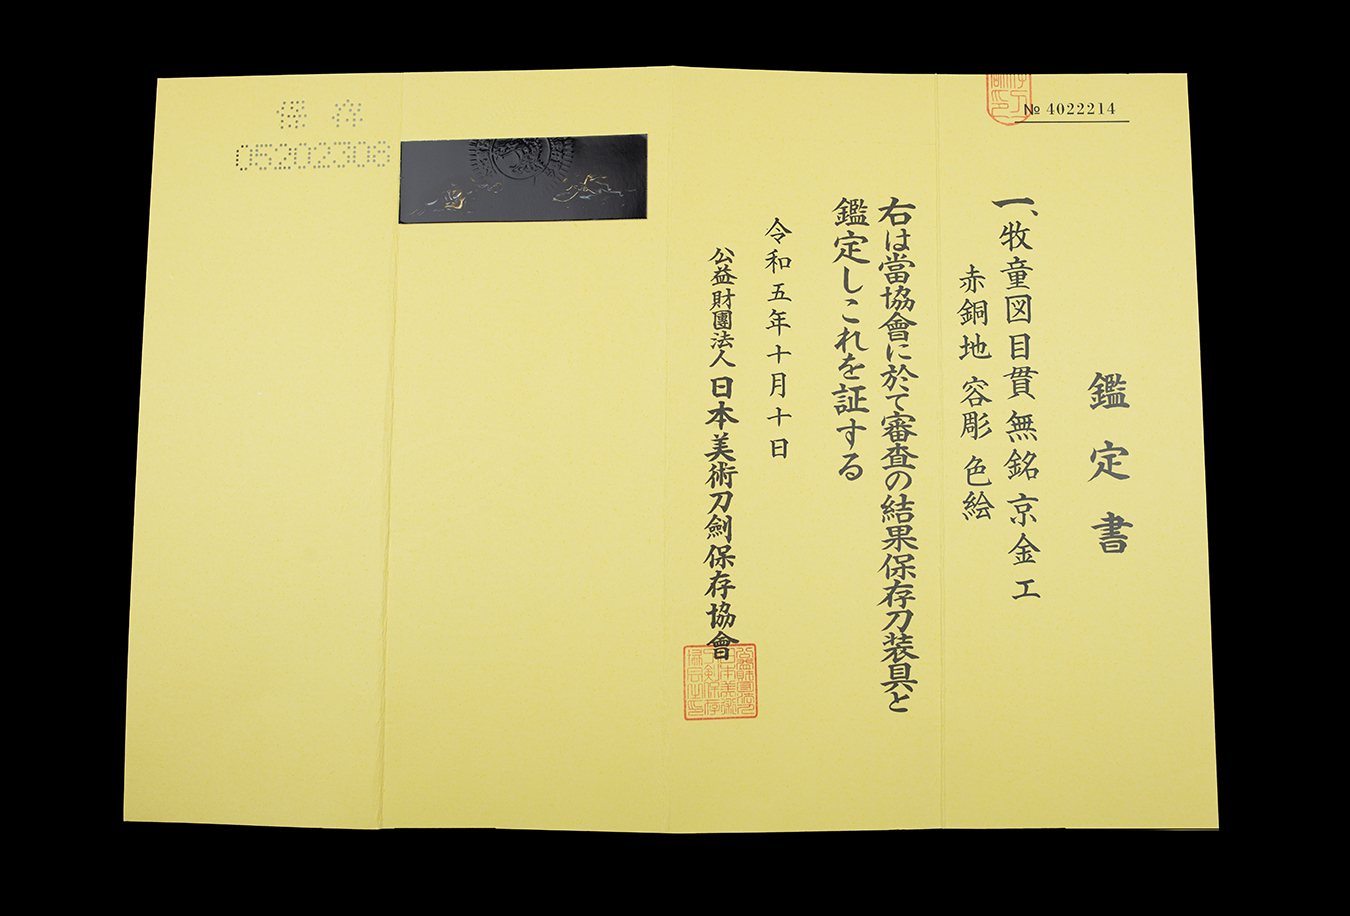 № 4022214
鑑定書
一、牧童図目貫 無銘 京金工
赤銅地 容彫 色絵
右は當協會に於て審査の結果保存刀装具と
鑑定しこれを証する
令和五年十月十日
公益財團法人 日本美術刀劍保存協會
保存
05202308